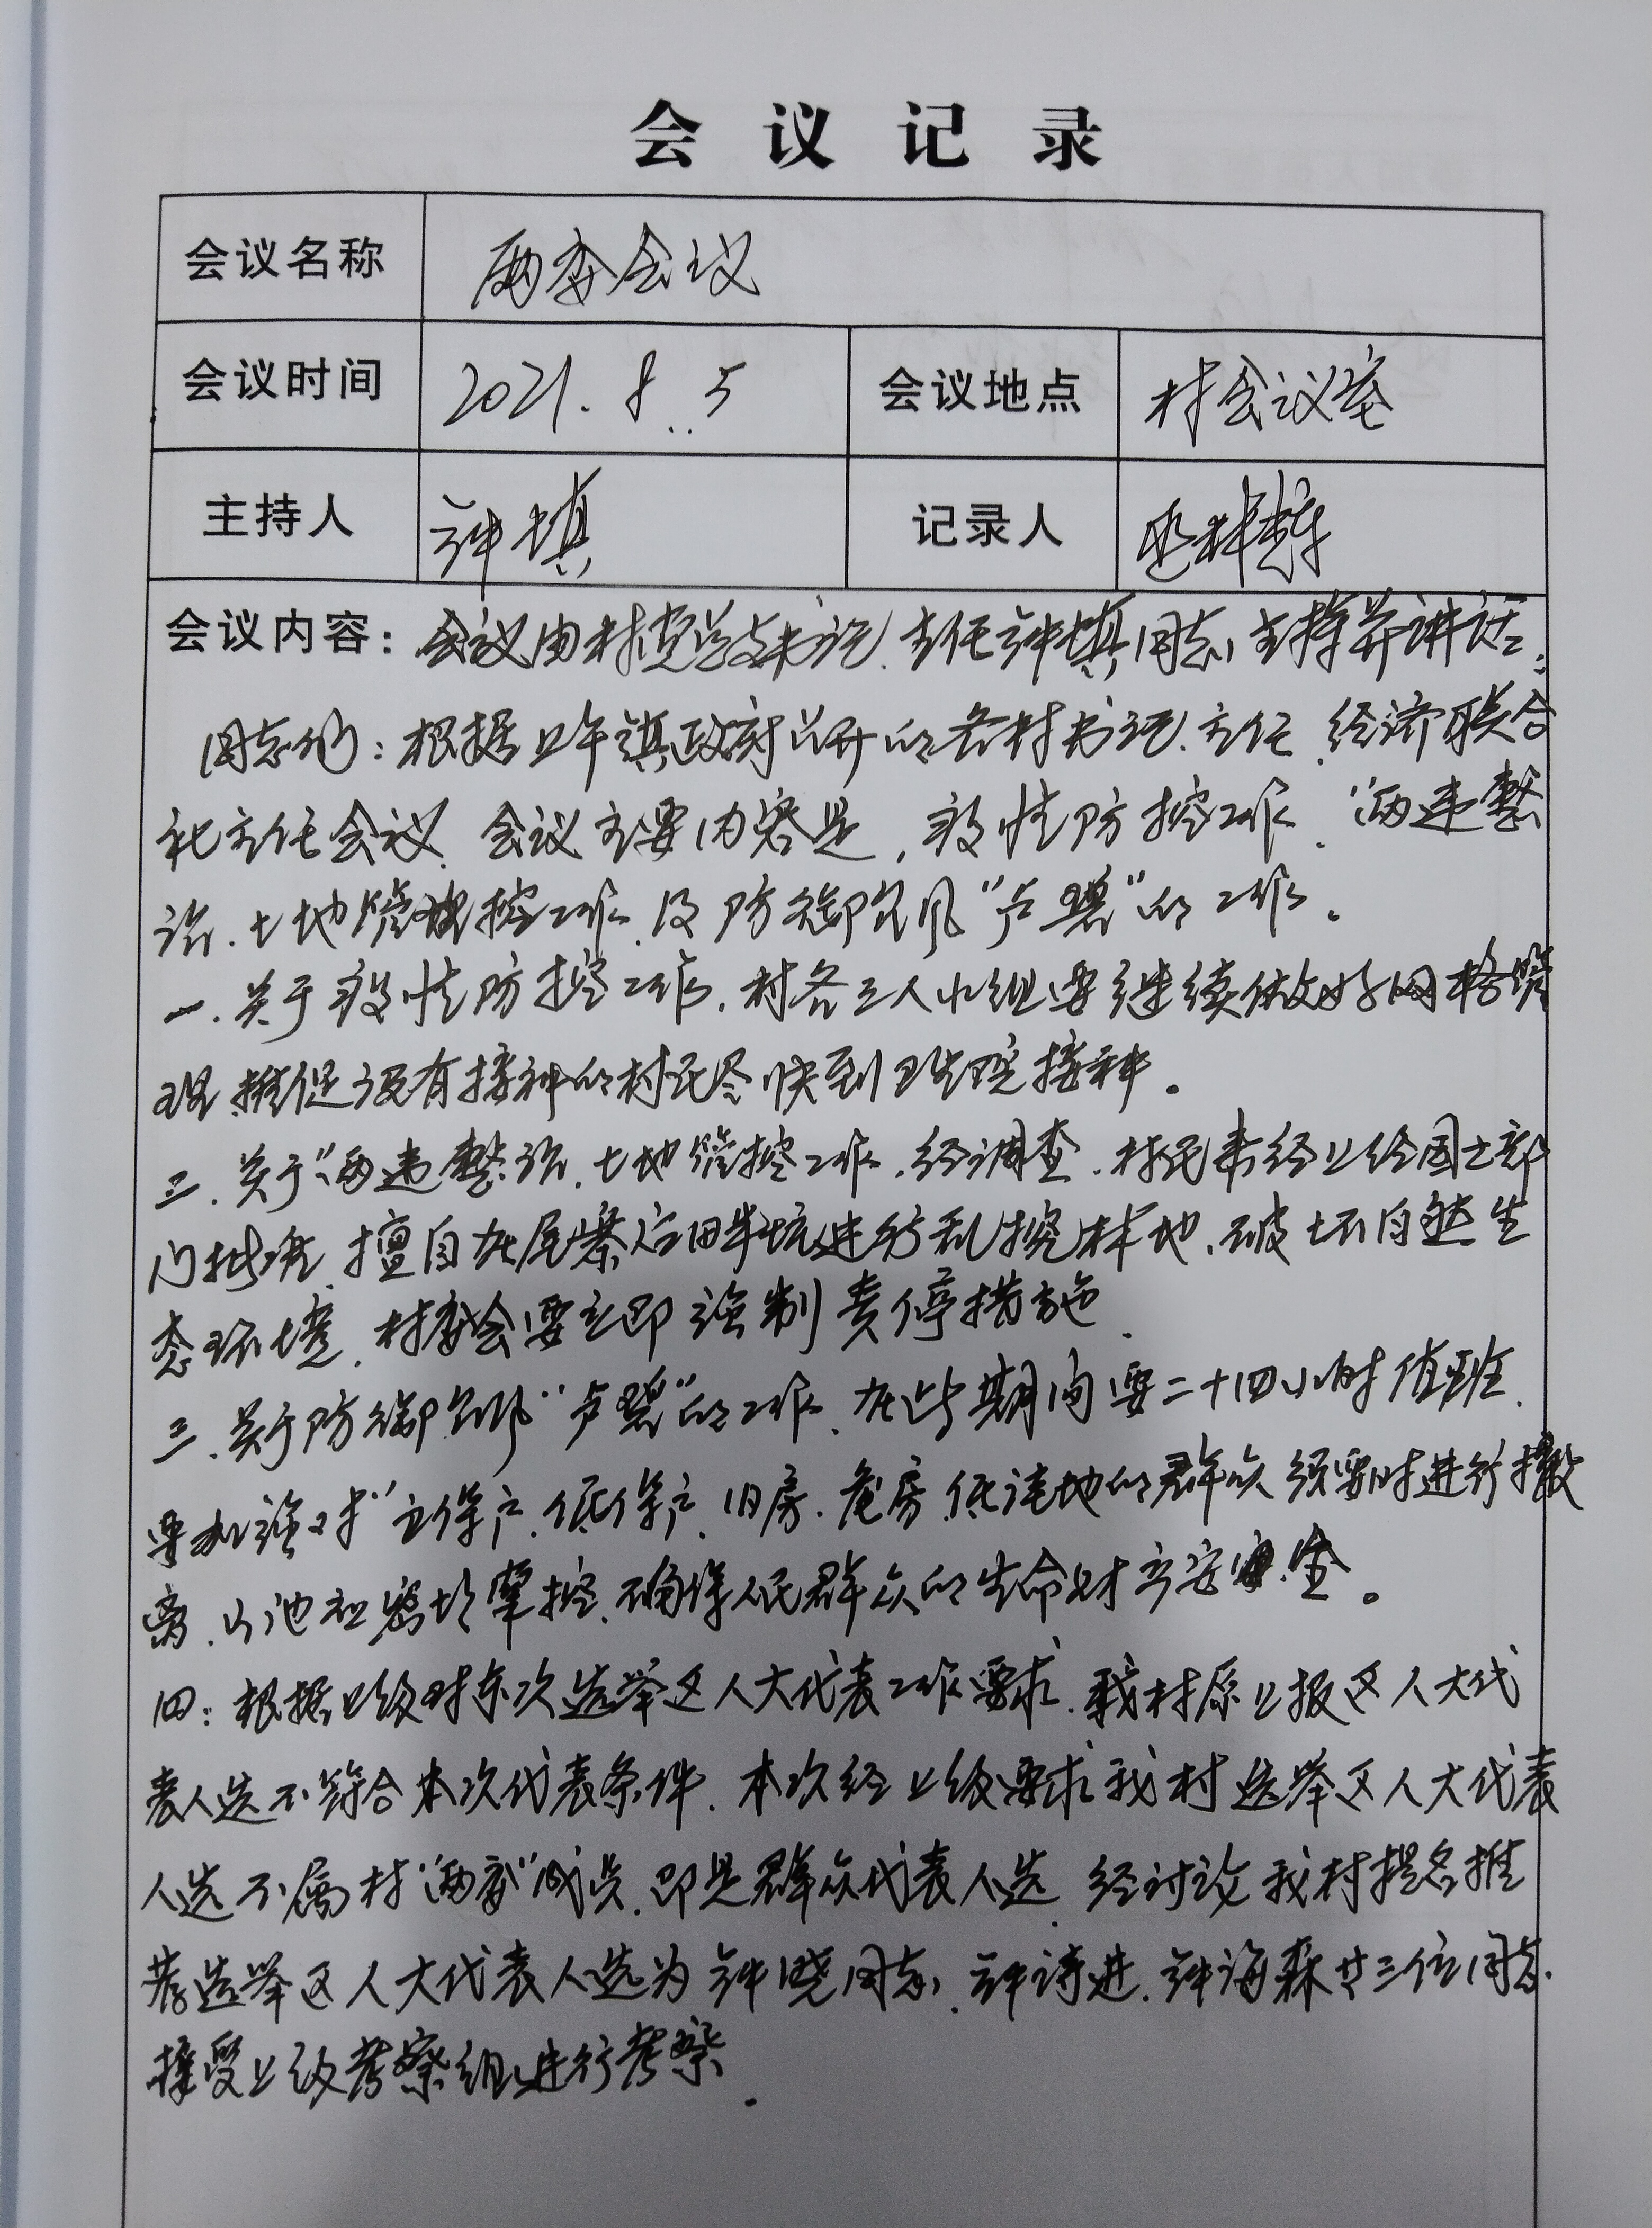 会议记录
会议名称 两委会议
会议时间 2021.8.5 会议地点 村会议室
主持人 钟填 记录人
会议内容：会议由村党总支书记、主任钟填同志主持并讲话：
同志们：根据上午镇政府召开的各村书记、主任、经济联合
社主任会议、会议主要内容是，疫情防控工作、“两违整
治、土地管控工作、及防御台风“卢碧”的工作。
一、关于疫情防控工作，村各三人小组要继续做好网格管
理，推促没有接种的村民尽快到卫生院接种。
二、关于“两违整治、土地管控工作，经调查，村民未经上给国土部
门批准，擅自在尾寮后田半坑进行乱挖林地、破坏自然生
态环境，村委会要立即强制责停措施、
三、关于防御台风“卢碧”的工作、在此期间要二十四小时值班、
要加强对“五保户、低保户、旧房、危房、低洼地的群众须要时进行撤
离、山池和密切掌控、确保人民群众的生命财产安全。
四：根据上级对东次选举区人大代表工作要求、我村原上报区人大代
表人选不符合本次代表条件、本次经上级要求我村选举区人大代表
人选不属村“两委”成员、即是群众代表人选、经讨论我村提名推
荐选举区人大代表人选为钟晓同志、钟诗进、钟海森廿三位同志
接受上级考察组进行考察、